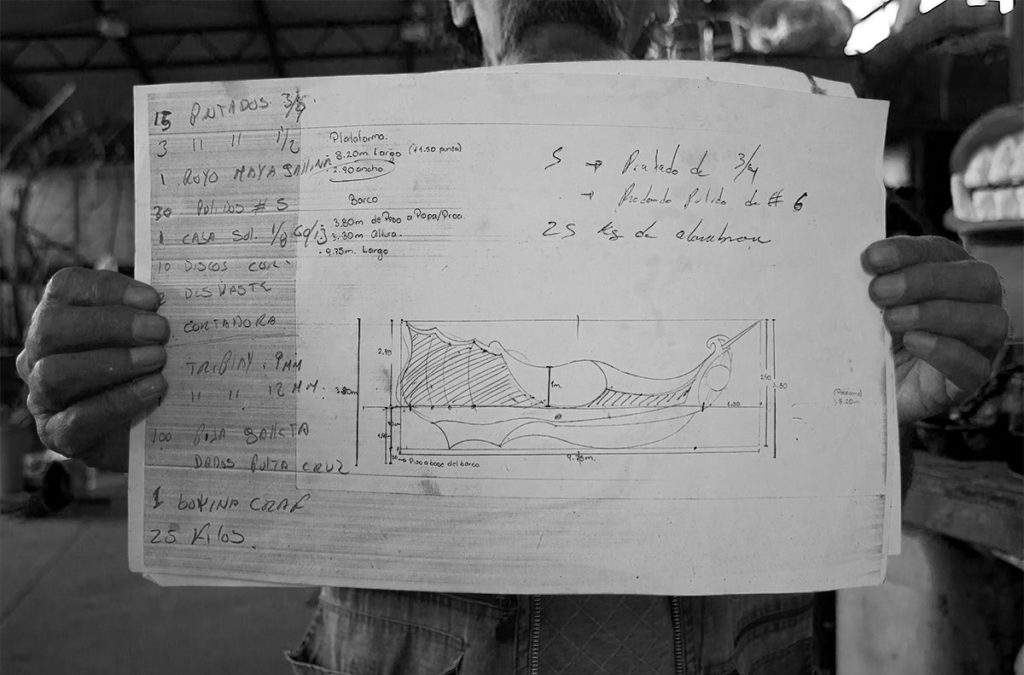 15 PUTADOS 3/8.
3 " " 1/2
1 ROYO MAYA GAllINA
30 PULIDOS # 5
1 CAGA Sol. 1/8 6013
10 DISCOS COR.
2 DESVASTE
CORTADORA
TRIPlAY. 9MM
" " 12 MM.
100 PIJA
DADOS PUTA CRUZ
1 BOVINA CRAF
25 Kilos.
Plataforma.
8.20m Largo (+1.50 punta)
2.90 ancho
Barco
3.80m de Piso a Popa/Proa.
3.30m Altura.
• 9.75m. Largo
5 → de 3/4
→ Redondo Pulido de # 6
25 kg de alambron
2.40
3.80m
1m.
1.50
2.40
3.80
8.20m
9.75m.
→ Piso a base del barco